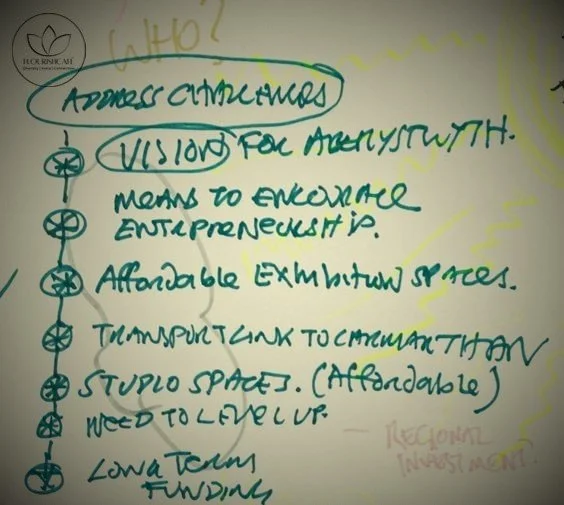 WHO?
FLOURISHCAFE
ADDRESS CHALLENGES
VISION FOR ABERYSTWYTH.
MEANS TO ENCOURAGE
ENTREPRENEURSHIP.
Affordable EXHIBITION SPACES.
TRANSPORT LINK TO CARMARTHAN
STUDIO SPACES. (Affordable)
NEED TO LEVEL UP.
LONG TERM
FUNDING
— REGIONAL
INVESTMENT?